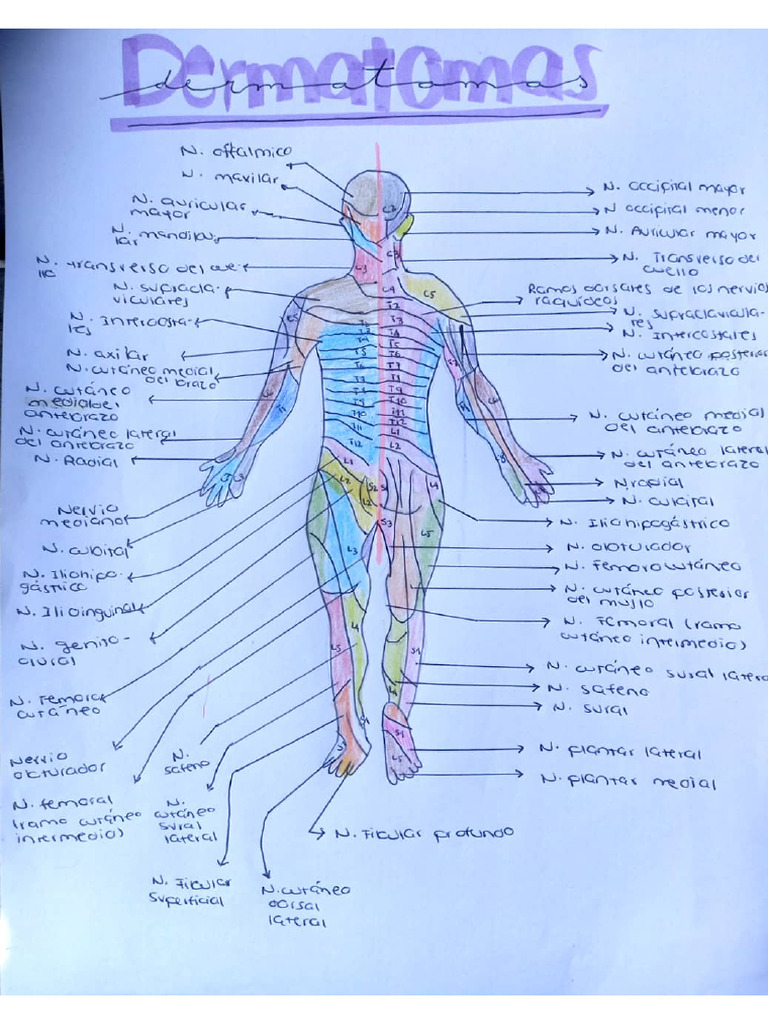 Dermatomas
dermatomas
N. oftalmico
N. maxilar
N. auricular
mayor
N. mandibu-
lar
N. transverso del cue-
llo
N. supracla-
viculares
N. Intercosta-
les
N. axilar
N. cutáneo medial
del brazo
N. cutáneo
medial del
antebrazo
N. cutáneo lateral
del antebrazo
N. Radial
Nervio
mediano
N. cubital
N. Iliohipo-
gástrico
N. Ilioinguinal
N. genito-
crural
N. Femoro
cutáneo
Nervio
obturador
N. femoral
(ramo cutáneo
intermedio)
N.
safeno
N.
cutáneo
sural
lateral
N. Fibular
superficial
N. cutáneo
dorsal
lateral
N. Fibular profundo
N. occipital mayor
N occipital menor
N. Auricular mayor
N. Transverso del
cuello
Ramos dorsales de los nervios
raquídeos
N. supraclavicula-
res
N. Intercostales
N. cutáneo posterior
del antebrazo
N. cutáneo medial
del antebrazo
N. cutáneo lateral
del antebrazo
N radial
N. cubital
N. Iliohipogástrico
N. obturador
N. Femorocutáneo
N. cutáneo posterior
del muslo
N. Femoral (ramo
cutáneo intermedio)
N. cutáneo sural latera
N. safeno
N. sural
N. plantar lateral
N. plantar medial
C2
C3
C3
C4
C5
C5
T2
T3
T3
T4
T4
T5
T5
T6
T6
T7
T7
T8
T8
T9
T9
T10
T10
T11
T11
T12
T12
L1
L2
L1
L2
S2
S3
L3
L4
L5
L5
L4
L5
S1
L4
S1
L5
C6
T1
C6